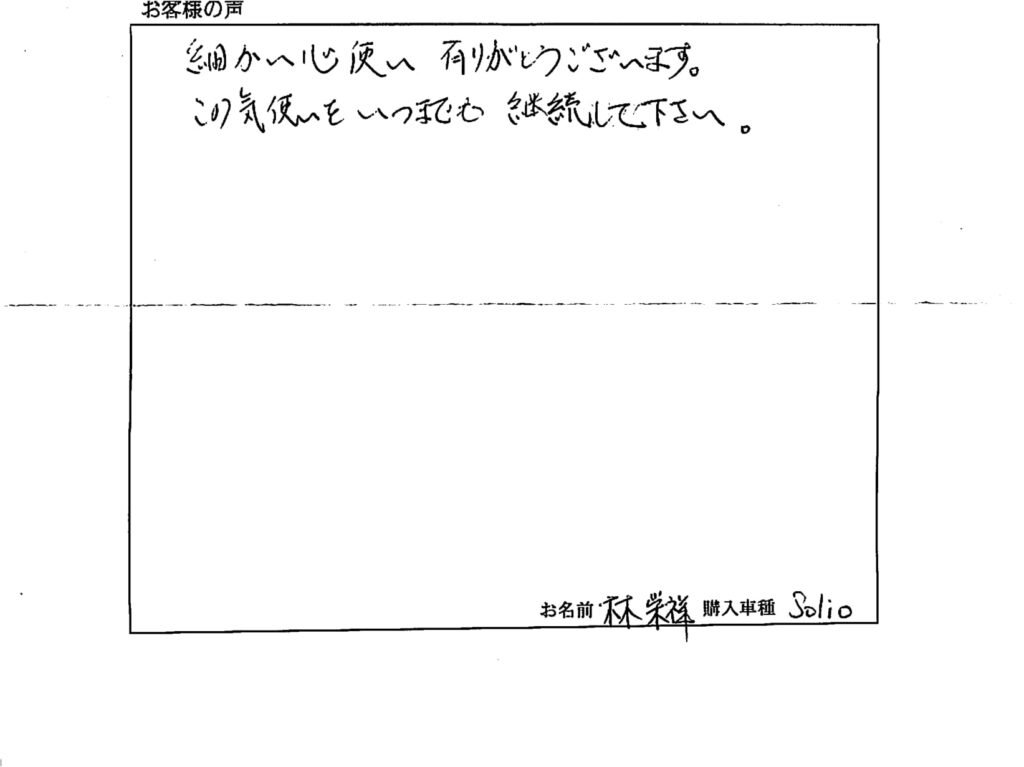 お客様の声
細かい心使い 有りがとうございます。
この気使いを いつまでも 継続して下さい。
お名前 林 栄祥 購入車種 Solio